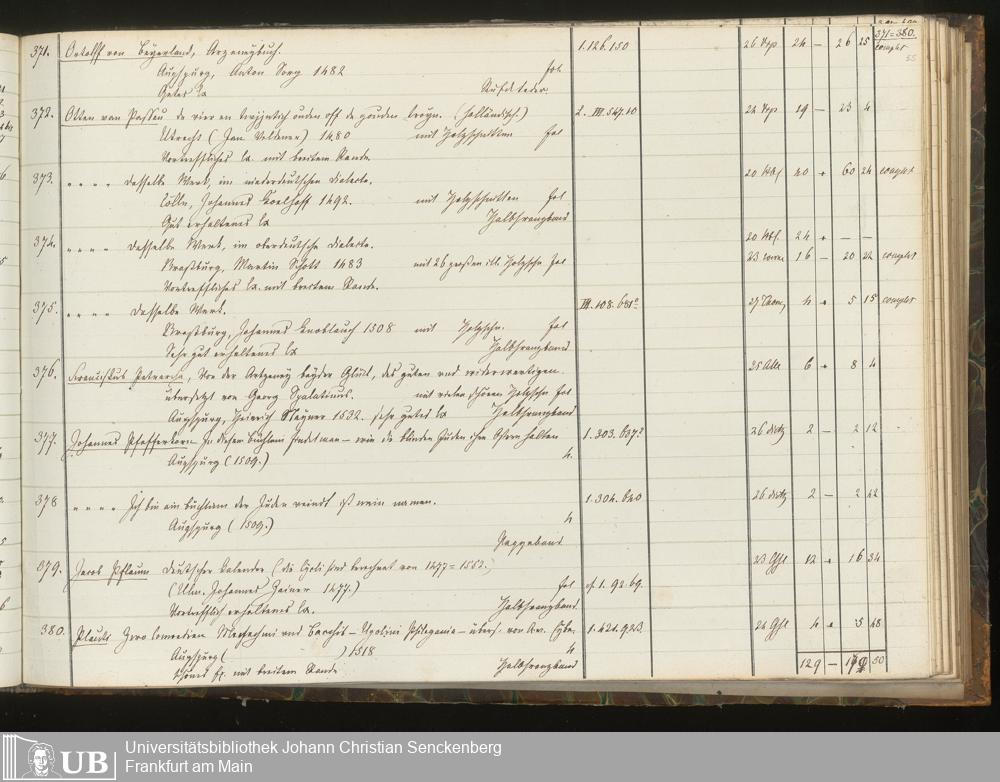 371 = 380.
complet
55
371. Ortolff von Bayerland, Arzeneybuch. 1.126.150 26 24 — 26 25
Augspurg, Anton Sorg 1482 fol
Gutes Ex
372. Otten van Passau. de vier en twijntich ouden off de gouden troyn. (holländisch) 2. III. 549.10 24 19 — 23 4
Utrecht (Jan Veldener) 1480 mit Holzschnitten fol
Vortreffliches Ex. mit breitem Rande
373. " " " " dasselbe Werk, im niederdeutschen Dialecte. 20 40 60 24 complet
Cölln, Johannes Koelhoff 1492. mit Holzschnitten fol
Gut erhaltenes Ex Halbfranzband
374. " " " " dasselbe Werk, im oberdeutsche Dialecte. 20 24 — —
Straßburg, Martin Schott 1483 mit 26 großen ill. Holzschn fol 23 16 — 20 22 complet
Vortreffliches Ex. mit breitem Rande.
375. " " " " dasselbe Werk. III. 108. 681 4 5 15 complet
Straßburg, Johannes Knoblauch 1508 mit Holzschn. fol
Sehr gut erhaltenes Ex Halbfranzband
376. Franciskus Petrarcha, Von der Artzeney beyder Glück, des guten und widerwertigen. 25 6 8 4
übersetzt von Georg Spalatinus. mit vielen schönen Holzschn fol
Augspurg, Heinrich Stayner 1532. sehr gutes Ex Halbfranzband
377. Johannes Pfefferkorn In diesem büchlein findet man — wie die blinden Juden ihre Ostern halten 1.303.637 26 2 — 2 12
Augspurg (1509.) 4.
378 " " " " Ich bin ein büchlein der Juden veindt ist mein namen. 1.304.640 26 2 — 2 42
Augspurg (1509.) 4
Pappband
379. Jacob Pflaum deutscher Kalender (die berechnet von 1477=1552.) 23 12 — 16 34
(Ulm. Johannes Zainer 1477.) fol cf. 1. 92.69.
Vortrefflich erhaltenes Ex. Halbfranzband.
380. Plauti Zwo Comedien Menaechmi und Bacchis — Ugolini Philegenia — übers. von Alb. Eybe. 1.421.923. 24 4 5 48
Augspurg ( ) 1518 4
schönes Ex. mit breitem Rande Halbfranzband
129 — 50
UB Universitätsbibliothek Johann Christian Senckenberg
Frankfurt am Main